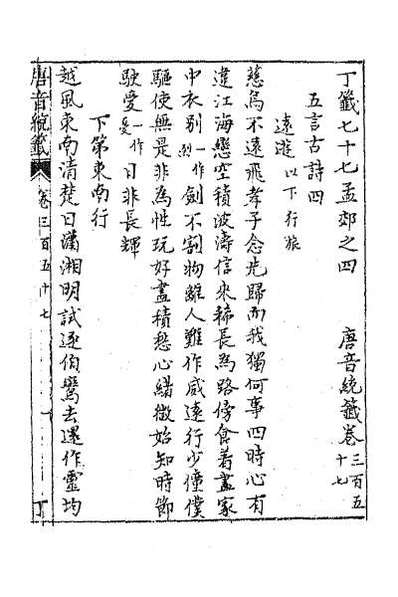 丁籤七十七孟郊之四 唐音統籤卷三百五十七
五言古詩四
遠遊以下行旅
慈烏不遠飛孝子念先歸而我獨何事四時心有
違江海戀空積波濤信來稀長為路傍食着盡家
中衣別一作劍不割物離人難作威遠行少僮僕
驅使無是非為性玩好盡積愁心緒微始知時節
駛受一作愛日非長輝
下第東南行
越風東南清楚日瀟湘明試逐伯鸞去還作靈均
唐音統籤 卷三百五十七 一 丁